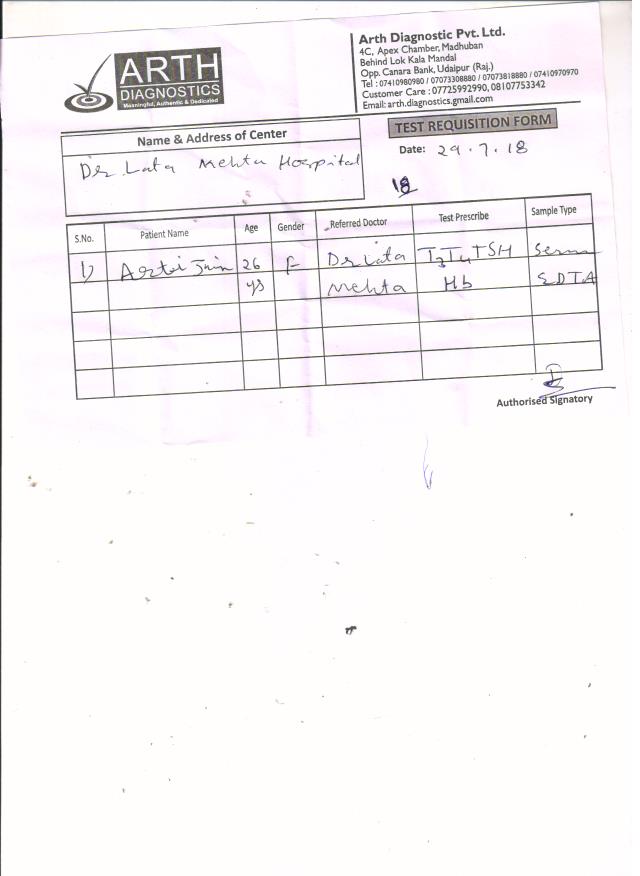 ARTH
DIAGNOSTICS
Meaningful, Authentic & Dedicated
Arth Diagnostic Pvt. Ltd.
4C, Apex Chamber, Madhuban
Behind Lok Kala Mandal
Opp. Canara Bank, Udaipur (Raj.)
Tel : 07410980980 / 07073308880 / 07073818880 / 07410970970
Customer Care : 07725992990, 08107753342
Email: arth.diagnostics.gmail.com
TEST REQUISITION FORM
Date: 29.7.18
Name & Address of Center
Dr Lata Mehta Hospital
18
S.No. Patient Name Age Gender Referred Doctor Test Prescribe Sample Type
1) Jain 26 F Dr Lata T3T4TSH Serum
ys Mehta Hb EDTA
Authorised Signatory